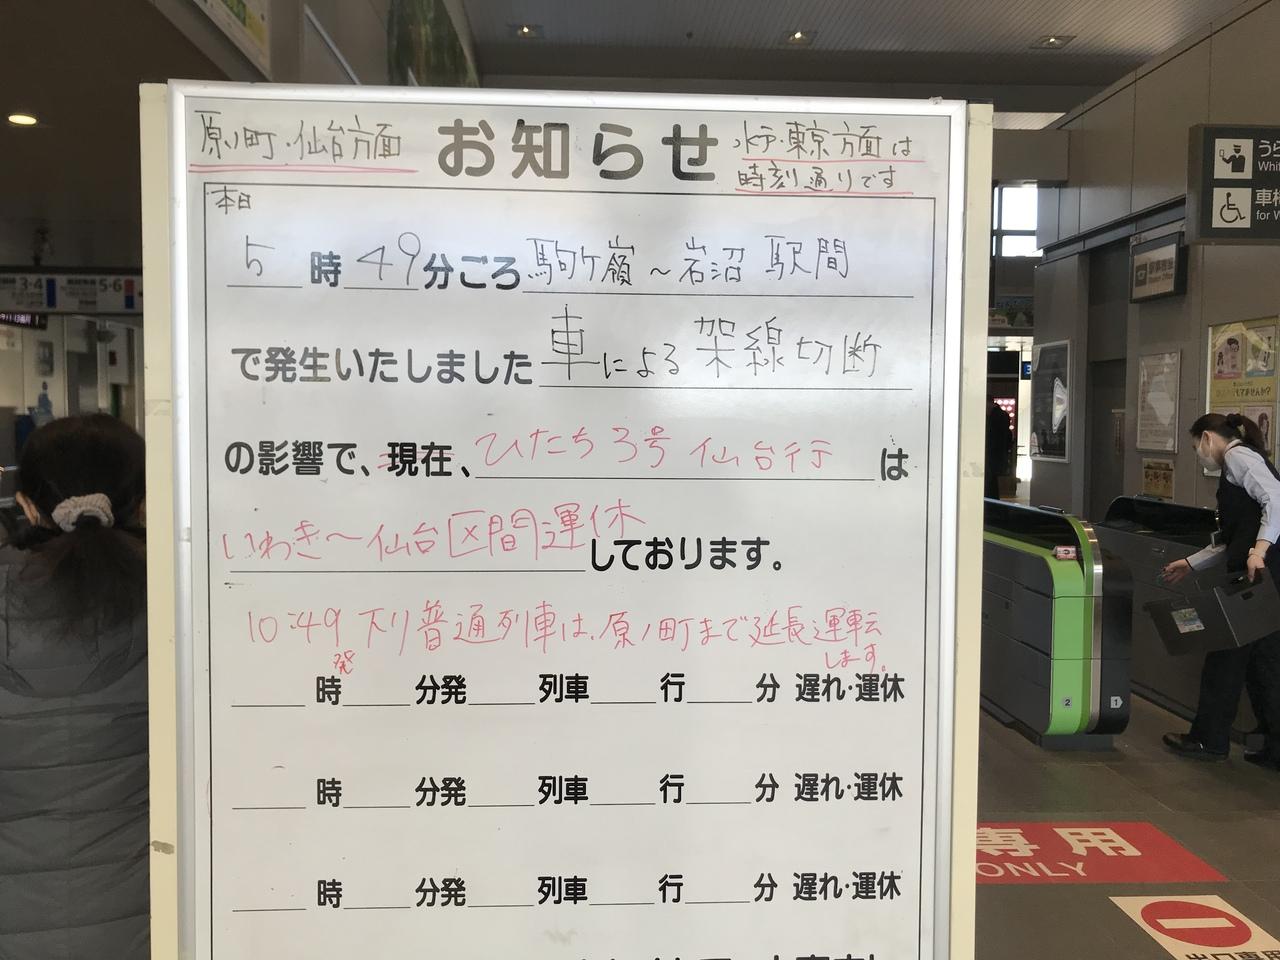 原ノ町・仙台方面
お知らせ
水戸・東京方面は
時刻通りです
本日
5時49分ごろ駒ケ嶺～岩沼駅間
で発生いたしました車による架線切断
の影響で、現在、ひたち3号 仙台行は
いわき～仙台区間運休しております。
10:49発 下り普通列車は、原ノ町まで延長運転します。
時 分発 列車 行 分 遅れ・運休
時 分発 列車 行 分 遅れ・運休
時 分発 列車 行 分 遅れ・運休
3-4
5-6
うら
車椅
for W
2
1
専用
ONLY